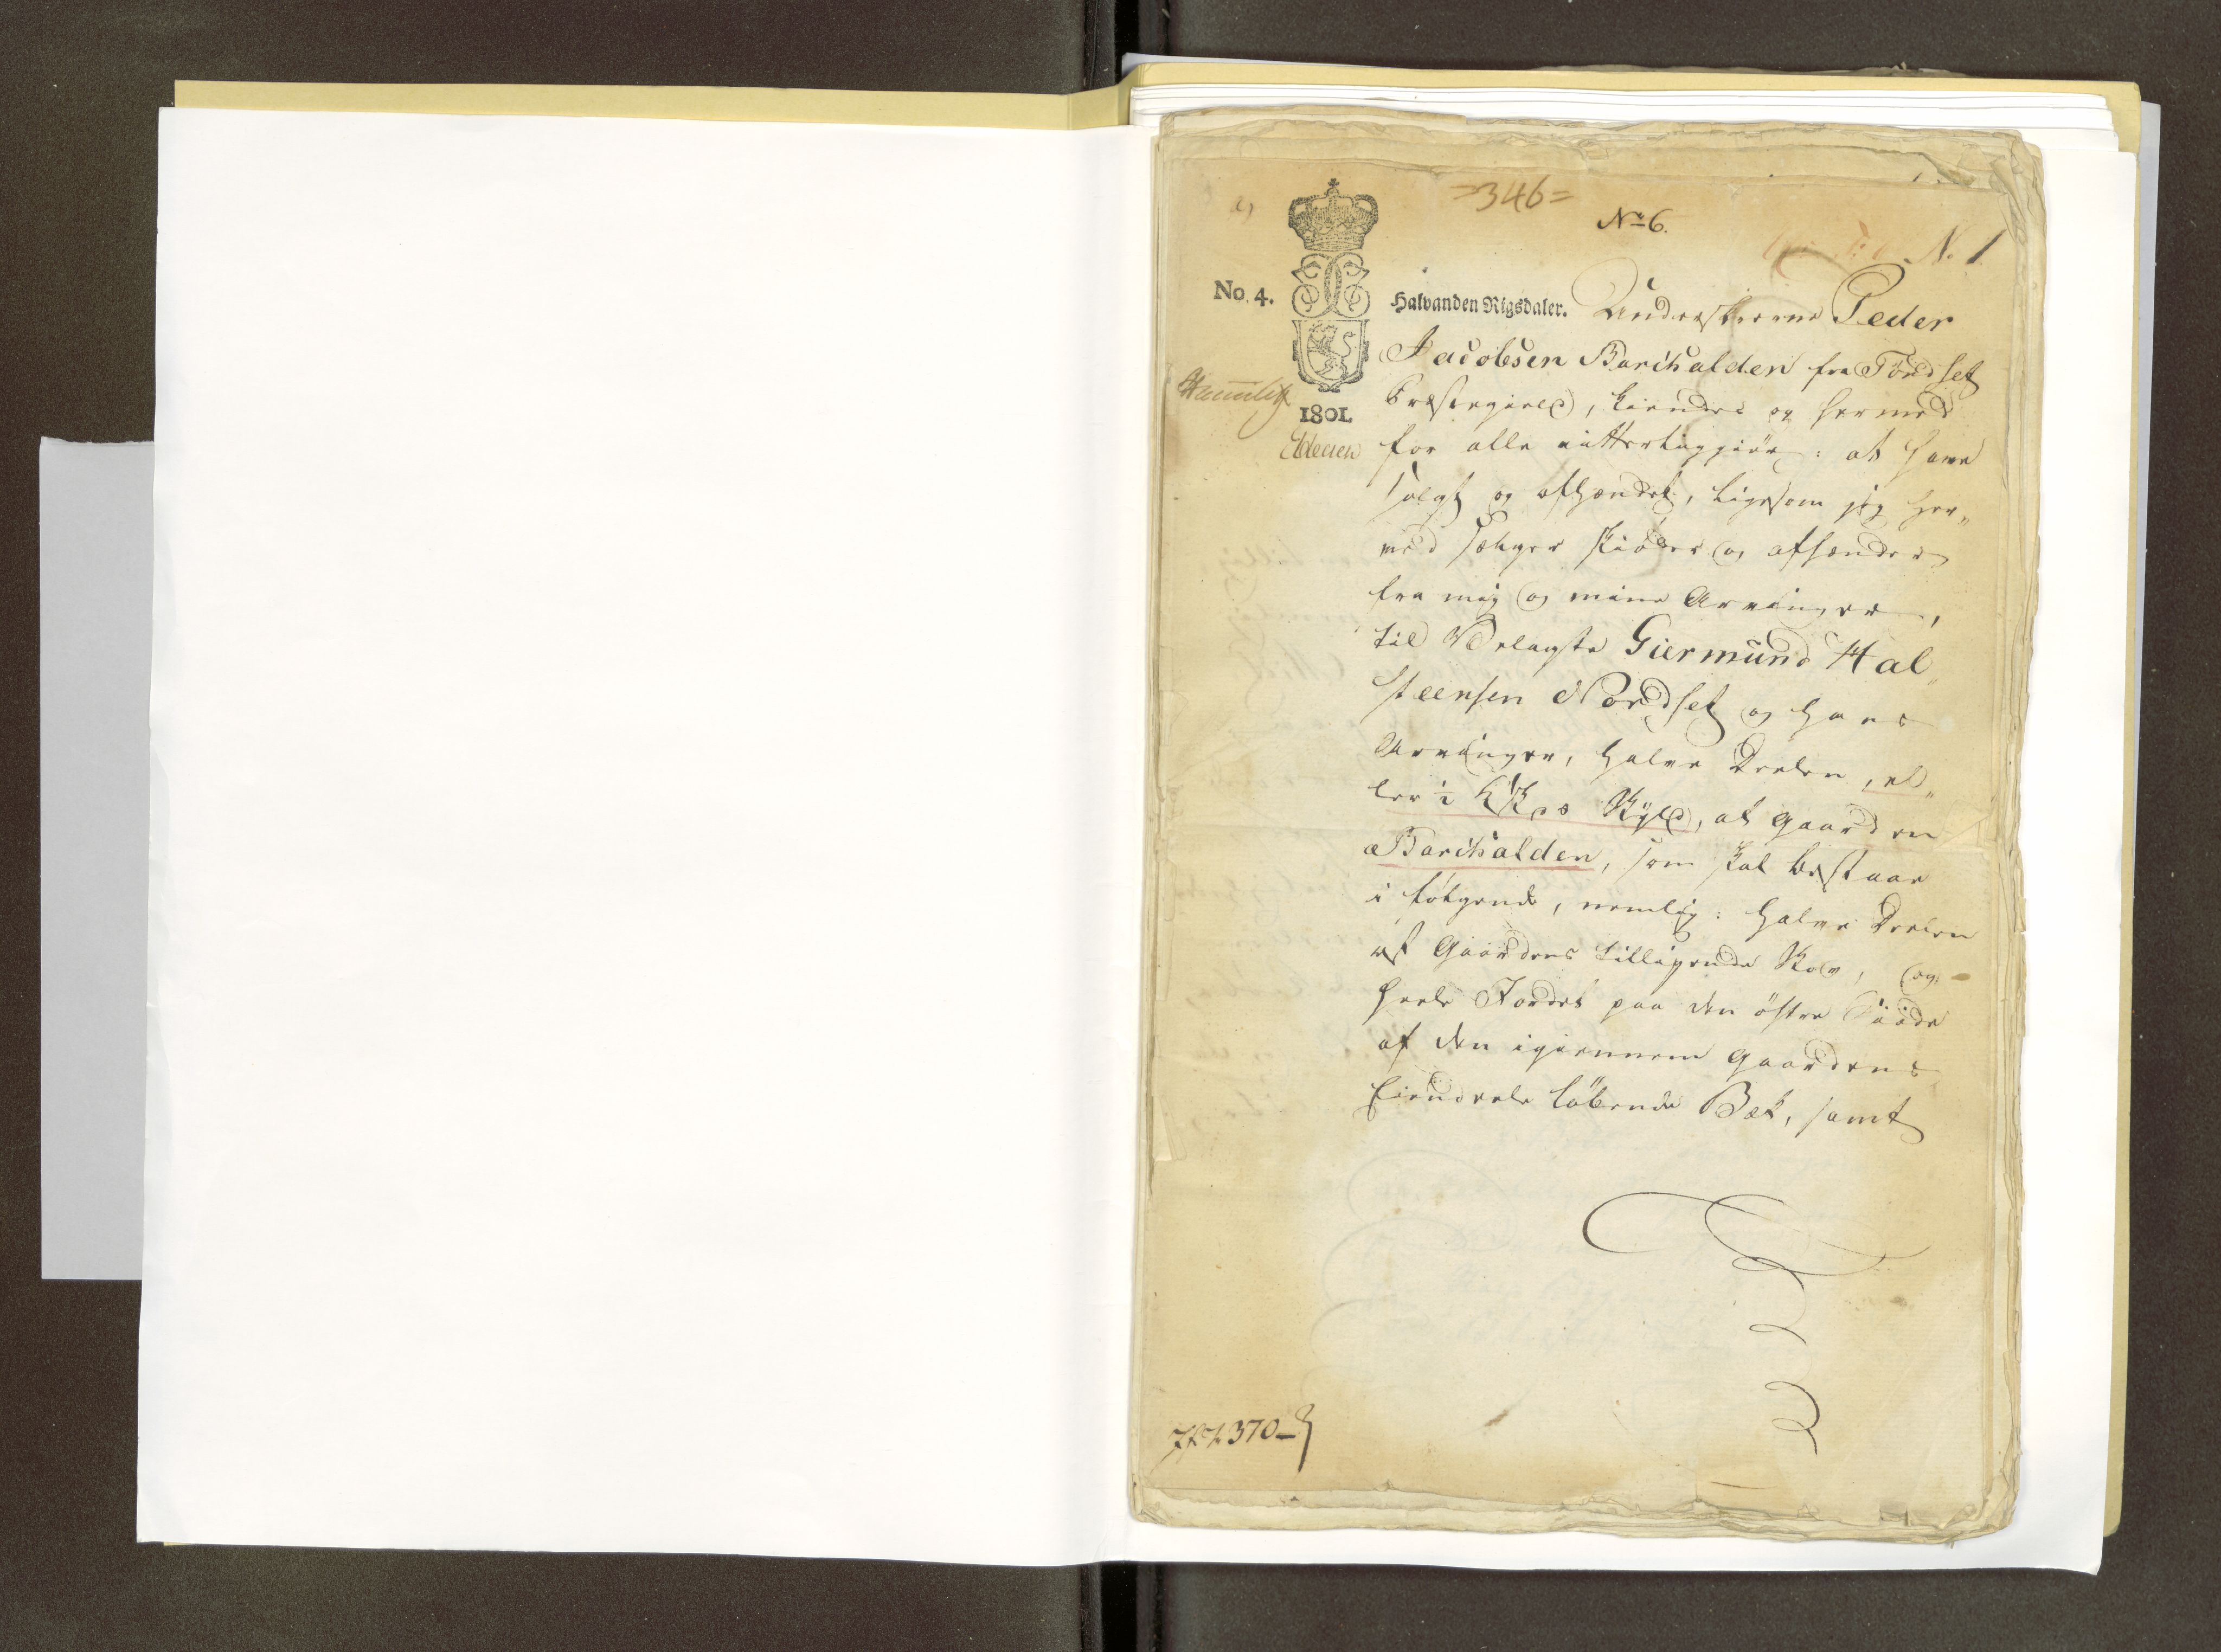 a)
=346=
No 6.
N. 1
No. 4.
Halvanden Rigsdaler. Underskrevne Peder
Jacobsen Barkhalden fra Tøndset
1801.
Præstegield, kiendes og hermed
for alle vitterliggiør: at have
solgt og afhændet, ligesom jeg her„
ved sælger skiøder og afhænder
fra mig og mine Arvinger,
til Velagte Giermund Hal„
steensen Nordset og hans
Arvinger, halve Deelen, el„
ler ½ Skyld, af Gaarden
Barkhalden, som skal bestaae
i følgende, nemlig: halve Deelen
af Gaardens tilliggende Skov, og
heele Jordet paa den østre Siide
af den igiennem Gaardens
Eiendeele løbende Bæk, samt
370